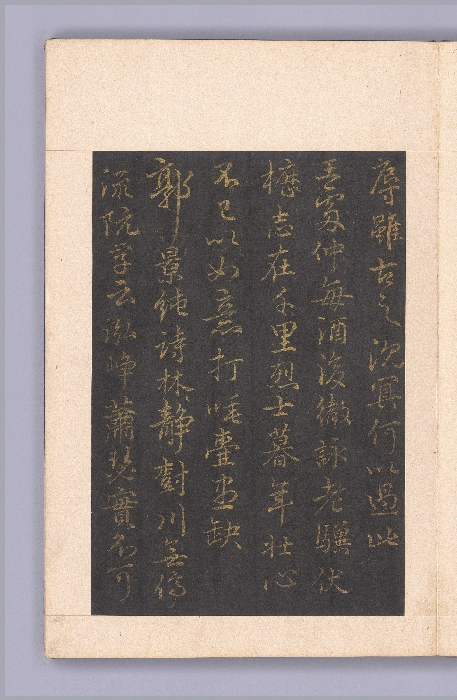 辱雖古之沈冥何以過此
王處仲每酒後輒詠老驥伏
櫪志在千里烈士暮年壯心
不已以如意打唾壺盡缺
郭景純詩林靜樹川無停
流阮孚云泓崢蕭瑟實不可